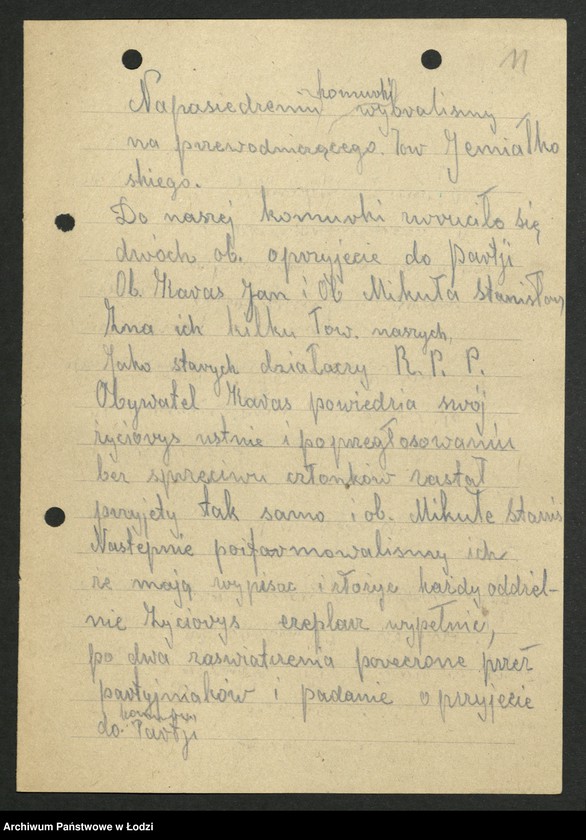 11
Naposiedzeniu komurki wybralismy
na przewodniczącego. Tow Jemiałko
skiego.
Do naszej komurki zwruciło się
dwóch ob. oprzyjęcie do partji
Ob. Karaś Jan i Ob Mikuła Stanisław
Zna ich kilku tow. naszych,
Jako starych działaczy R. P. P.
Obywatel Karas powiedzia swój
życiorys ustnie i poprzegłosowaniu
bez sprzeciwu członków został
przyjęty tak samo i ob. Mikułe Stanis
Następnie poiformowalismy ich
ze mają wypisac i złozyc każdy oddziel-
nie Życiorys ezeplaz wypełnić,
po dwa zaswiatczenia poreczone przez
partyjniaków i padanie o przyjęcie
do Partji
Archiwum Państwowe w Łodzi